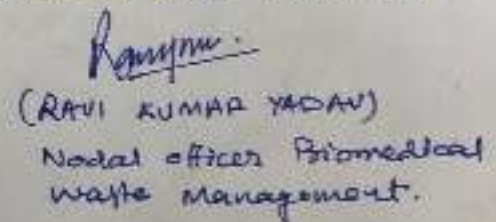 (RAVI KUMAR YADAV)
Nodal officer Biomedical
Waste Management.